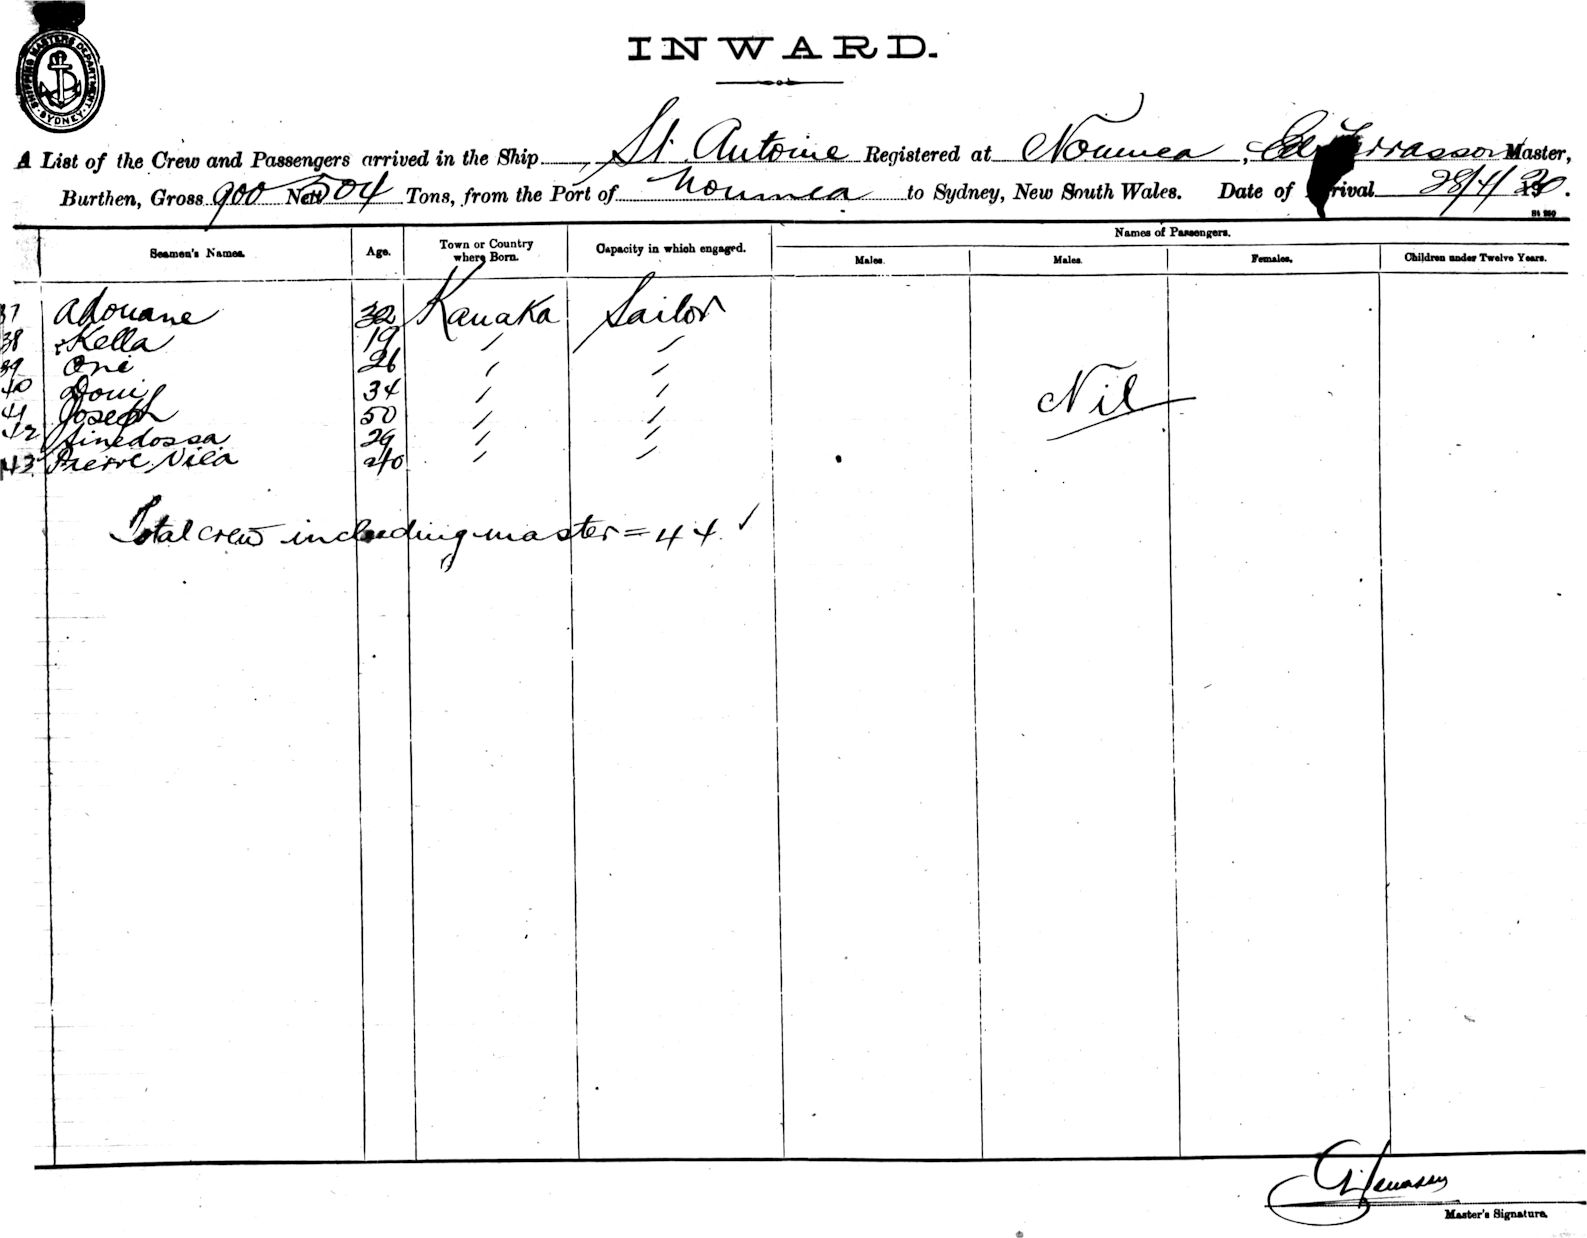 SHIPPING MASTERS DEPARTMENT SYDNEY
INWARD.
A List of the Crew and Passengers arrived in the Ship St. Antoine Registered at Noumea, Ed Terrasson Master,
Burthen, Gross 900 Nett 504 Tons, from the Port of Noumea to Sydney, New South Wales. Date of Arrival 28/4/20.
Names of Passengers.
Seamen's Names. Age. Town or Country where Born. Capacity in which engaged. Males. Males. Females. Children under Twelve Years.
37 Adouane 32 Kanaka Sailor
38 Kella 19 " "
39 Oni 26 " "
40 Doui 34 " "
Nil
41 Joseph 50 " "
42 Sinedossa 29 " "
43 Pierre Nila 40 " "
Total crew including master = 44 ✓
Master's Signature.